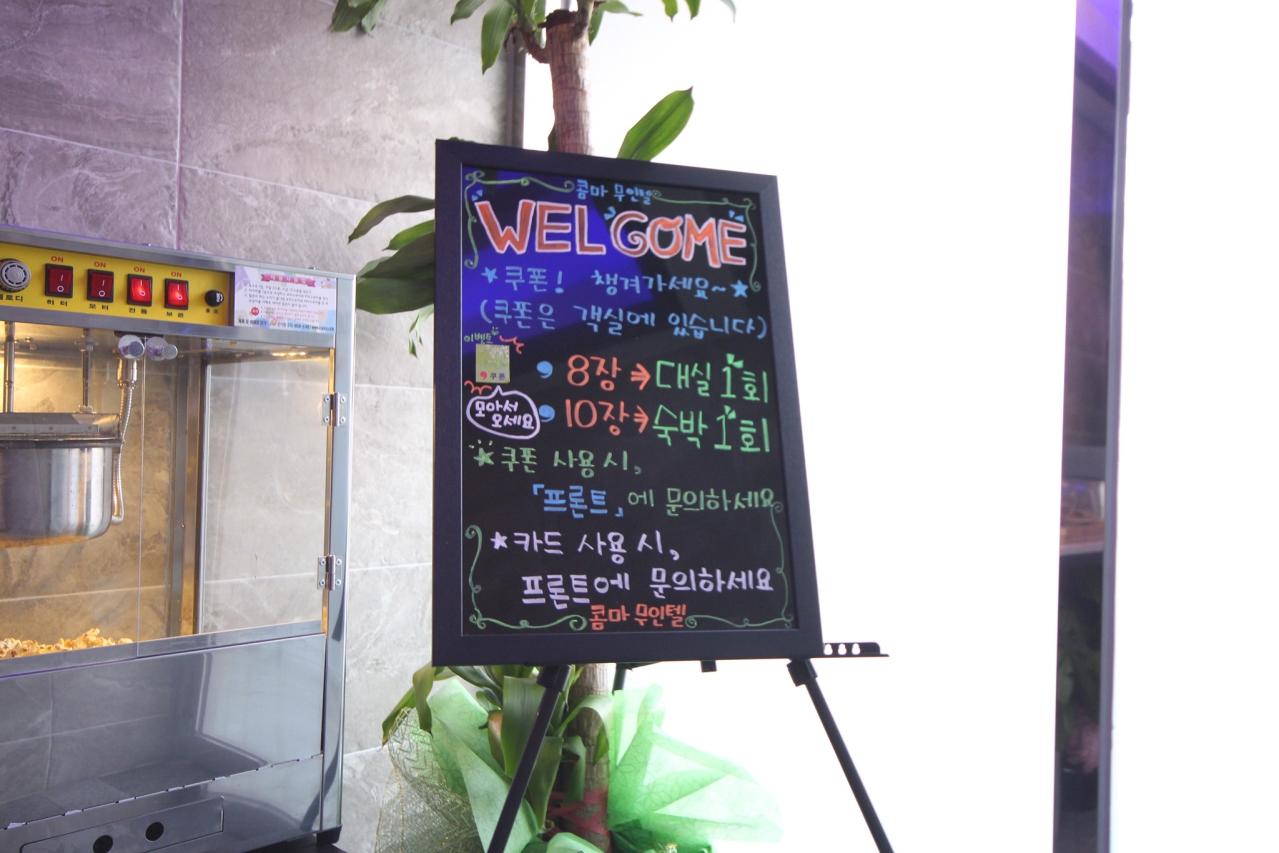 콤마 무인텔
WELCOME
★쿠폰! 챙겨가세요~★
(쿠폰은 객실에 있습니다)
이벤트
쿠폰
8장→대실 1회
모아서
오세요
10장→숙박 1회
쿠폰 사용 시,
「프론트」에 문의하세요
★카드 사용 시,
프론트에 문의하세요
콤마 무인텔
ON ON ON ON
히터 모터 전등 보온